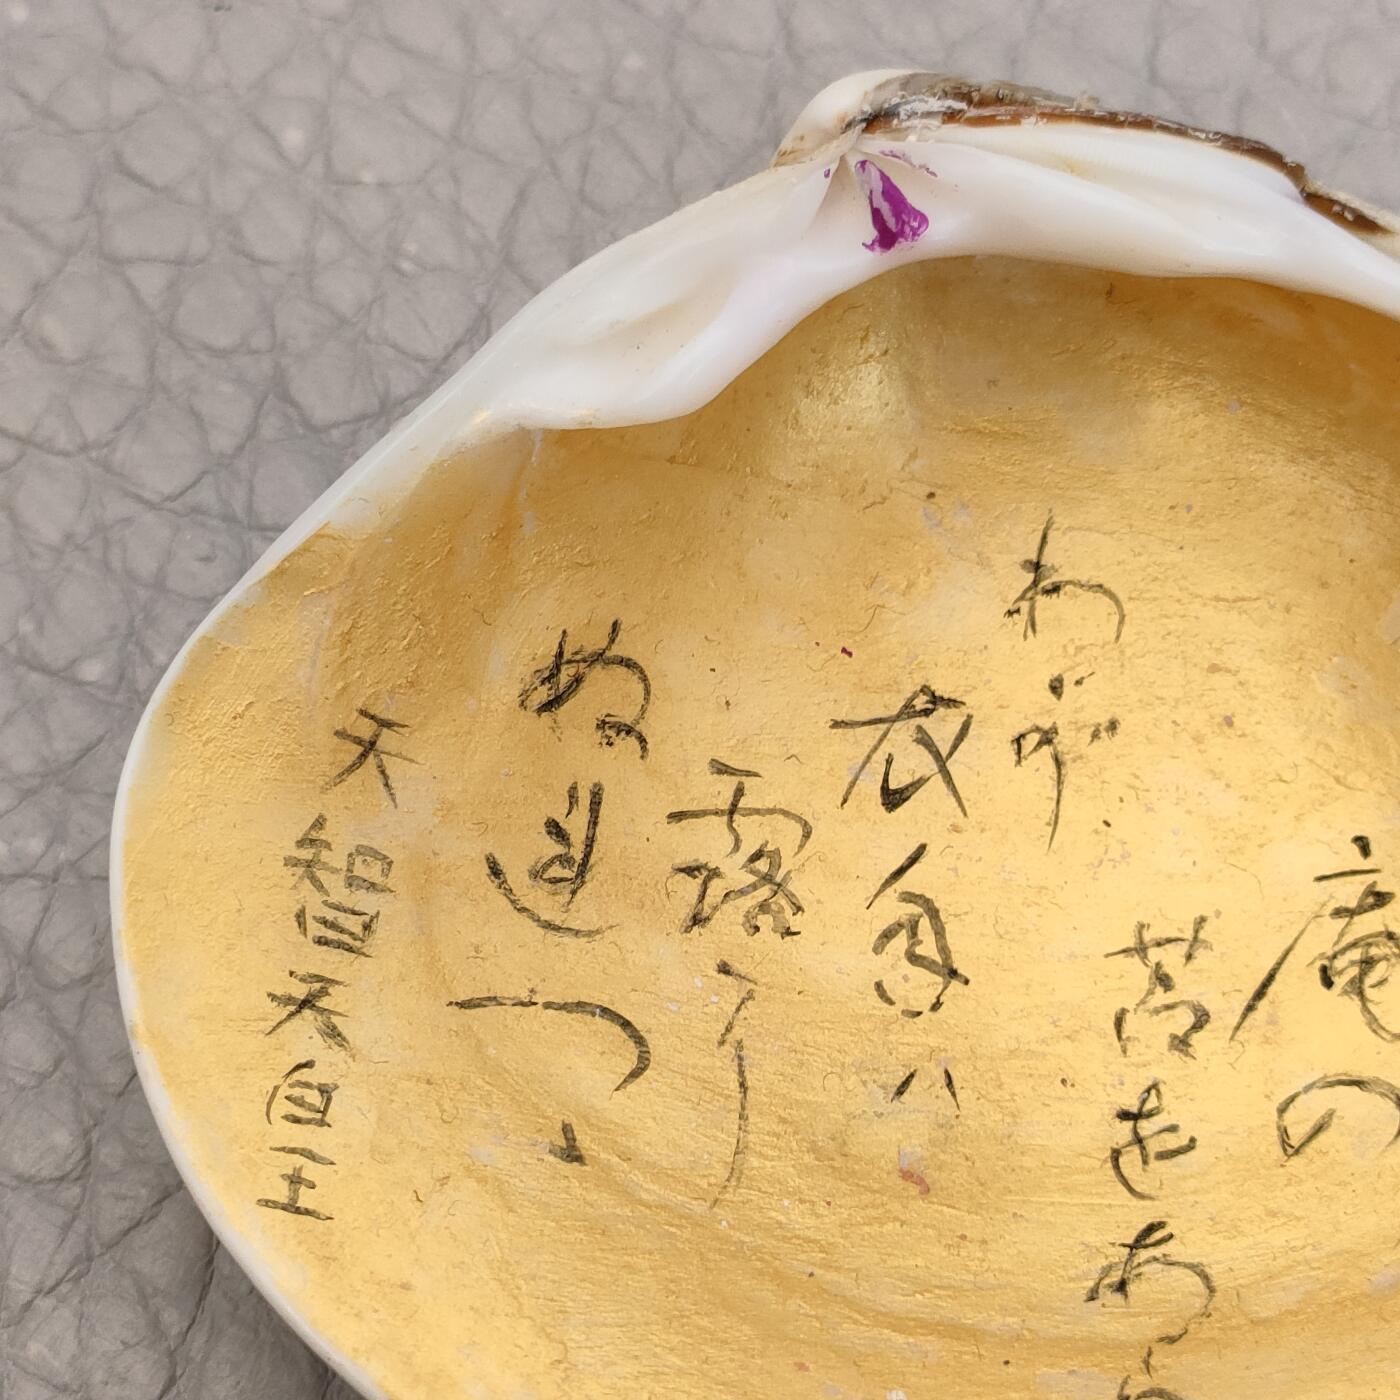 庵の
苫をあら
わが
衣ハ
露に
ぬ連つゝ
天智天皇